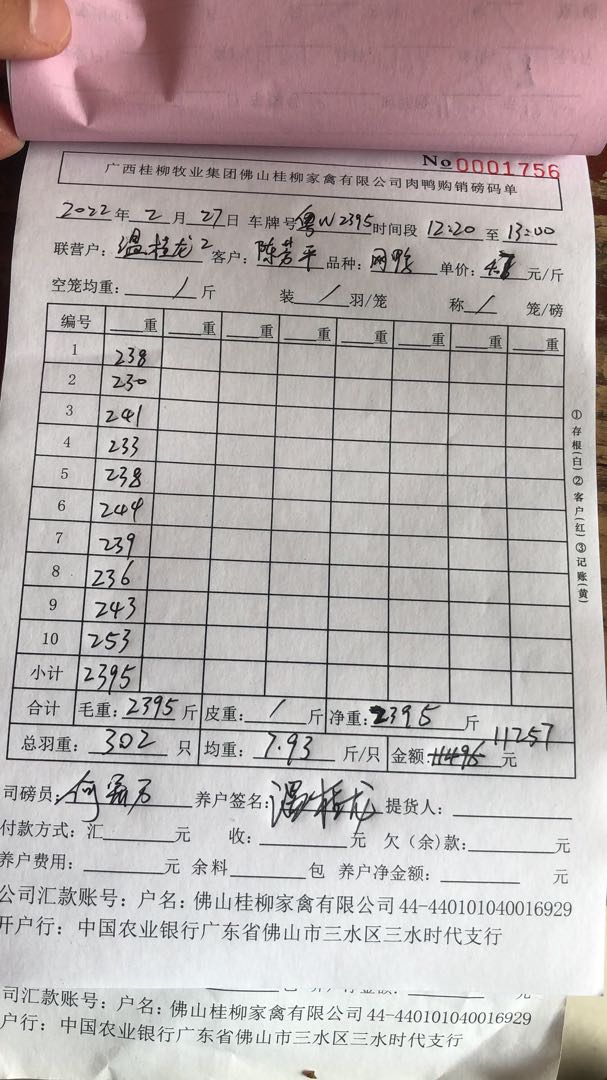 No 0001756
广西桂柳牧业集团佛山桂柳家禽有限公司肉鸭购销磅码单
2022年2月27日 车牌号粤W2395时间段 12:20 至 13:00
联营户：温桂龙2 客户：陈芳平 品种：网鸭 单价： 元/斤
空笼均重： / 斤 装 / 羽/笼 称 / 笼/磅
编号 重 重 重 重 重 重 重 重
1 238
2 230
3 241
4 233
5 238
6 244
7 239
8 236
9 243
10 253
小计 2395
合计 毛重：2395斤 皮重： / 斤 净重：2395 斤
总羽重：302 只 均重：7.93 斤/只 金额：11496 11257 元
①存根(白)②客户(红)③记账(黄)
司磅员：何 养户签名：温桂龙 提货人：
付款方式：汇 元 收： 元 欠（余）款： 元
养户费用： 元 余料 包 养户净金额： 元
公司汇款账号：户名：佛山桂柳家禽有限公司44-440101040016929
开户行：中国农业银行广东省佛山市三水区三水时代支行
司汇款账号：户名：佛山桂柳家禽有限公司44-440101040016929
户行：中国农业银行广东省佛山市三水区三水时代支行